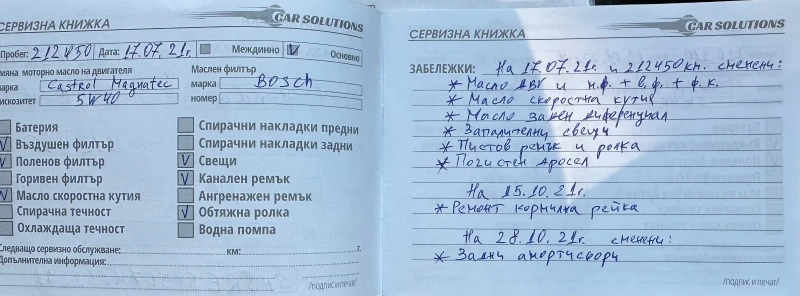 СЕРВИЗНА КНИЖКА
CAR SOLUTIONS
Пробег: 212450 Дата: 17.07.21г. Междинно V Основно
мяна моторно масло на двигателя
Маслен филтър
арка Castrol Magnatec
марка BOSCH
искозитет 5W40
номер
Батерия
V Въздушен филтър
V Поленов филтър
Горивен филтър
V Масло скоростна кутия
Спирачна течност
Охлаждаща течност
Спирачни накладки предни
Спирачни накладки задни
V Свещи
V Канален ремък
Ангренажен ремък
V Обтяжна ролка
Водна помпа
Следващо сервизно обслужване: г. км: г.
Допълнителна информация:
/подпис и печат/
СЕРВИЗНА КНИЖКА
CAR SOLUTIONS
ЗАБЕЛЕЖКИ: На 17.07.21г. и 212450км. сменени:
* Масло ДВГ и м.ф. + в.ф. + ф.к.
* Масло скоростна кутия
* Масло заден диференциал
* Запалителни свещи
* Пистов ремък и ролка
* Почистен дросел
На 15.10.21г.
* Ремонт кормилна рейка
На 28.10.21г. сменени:
* Задни амортисьори
/подпис и печат/